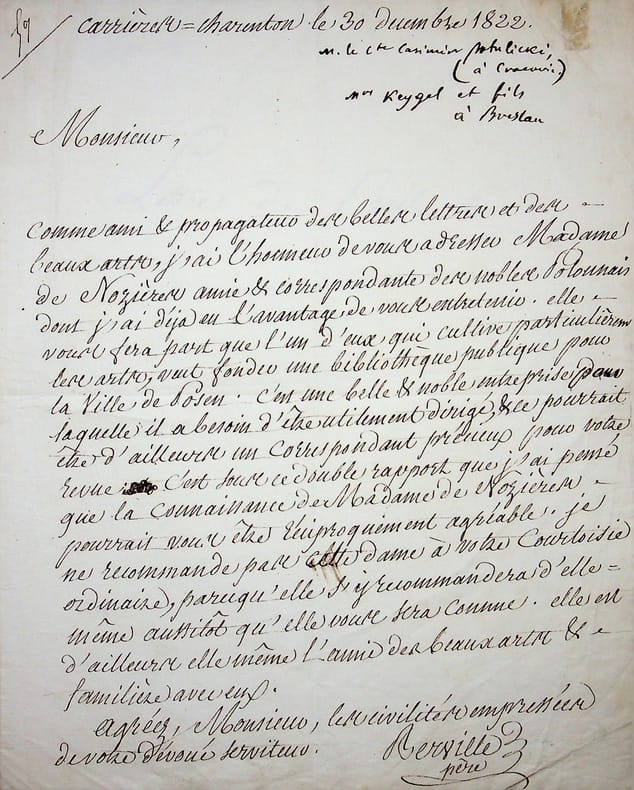 59
Carrières = charenton le 30 decembre 1822.
M. le Cte Casimir
(à Cracovie)
Mrs Keygel et fils
à Breslau
Monsieur,
Comme ami & propagateur des belles lettres et des
beaux arts, j'ai l'honneur de vous adresser Madame
de Nozières amie & correspondante des nobles Polonnais
dont j'ai déja eu l'avantage de vous entretenir. elle
vous fera part que l'un d'eux qui cultive particulièrem
les arts, veut fonder une bibliotheque publique pour
la Ville de Posen. C'est une belle & noble entreprise pour
laquelle il a besoin d'être utilement dirigé, & ce pourrait
être d'ailleurs un correspondant précieux pour votre
revue C'est sous ce double rapport que j'ai pensé
que la connaissance de Madame de Nozières
pourrait vous être réciproquement agréable. je
ne recommande pas cette dame à votre Courtoisie
ordinaire, parcequ'elle s'y recommandera d'elle =
même aussitôt qu'elle vous sera connue. elle est
d'ailleurs elle même l'amie des beaux arts &
familière avec eux.
agréez, Monsieur, les civilités empressées
de votre dévoué serviteur. Berville
père